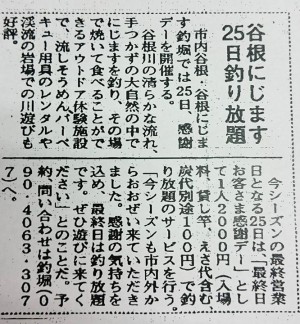 谷根にじます
25日釣り放題
市内谷根・谷根にじま
す釣堀では25日、感謝
デーを開催する。
谷根川の清らかな流れ、
手つかずの大自然の中で
にじますを釣り、その場
で焼いて食べることがで
きるアウトドア休験施設
で、流しそうめんバーベ
キュー用具のレンタルや
渓流の岩場での川遊びも
好評。
今シーズンの最終営業
日となる25日は、「最終日
お客さま感謝デー」とし
て1人2000円（入場
料、貸し竿、えさ代含む、
炭代別途100円）で釣
り放題のサービスを行う。
「今シーズンも市内外か
らおおぜい来ていただき
ました。感謝の気持ちを
込め、最終日は釣り放題
です。ぜひ遊びに来てく
ださい」とのことだ。予
約、問い合わせは釣堀（0
90・4003・307
7）へ。